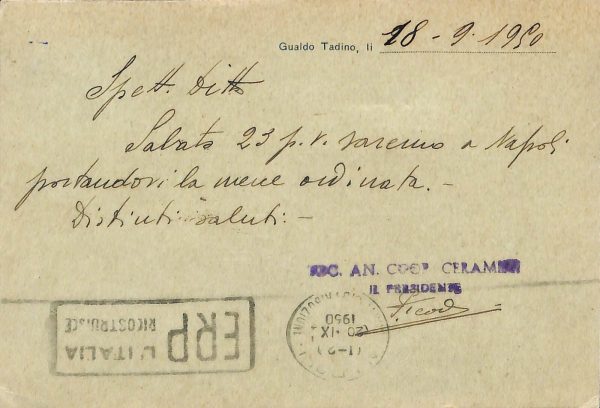 Gualdo Tadino, li 18-9-1950
Spett. Ditta
Sabato 23 p.v. saremo a Napoli
portandovi la merce ordinata.-
Distinti saluti.-
SOC. AN. COOP. CERAMISTI
IL PRESIDENTE
ERP L'ITALIA
RICOSTRUISCE
20.IX
1950